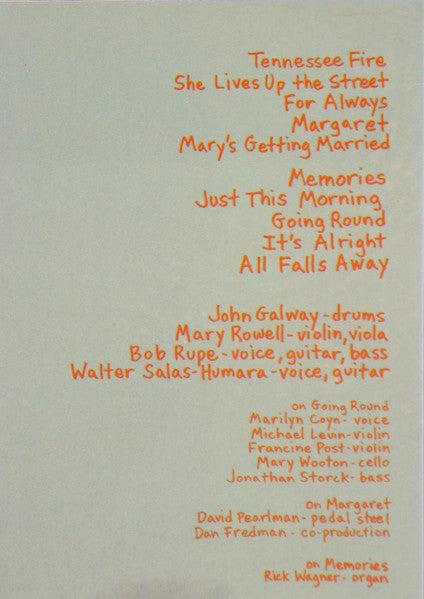 Tennessee Fire
She Lives Up the Street
For Always
Margaret
Mary's Getting Married
Memories
Just This Morning
Going Round
It's Alright
All Falls Away
John Galway - drums
Mary Rowell - violin, viola
Bob Rupe - voice, guitar, bass
Walter Salas-Humara - voice, guitar
on Going Round
Marilyn Coyn - voice
Michael Levin - violin
Francine Post - violin
Mary Wooton - cello
Jonathan Storck - bass
on Margaret
David Pearlman - pedal steel
Dan Fredman - co-production
on Memories
Rick Wagner - organ